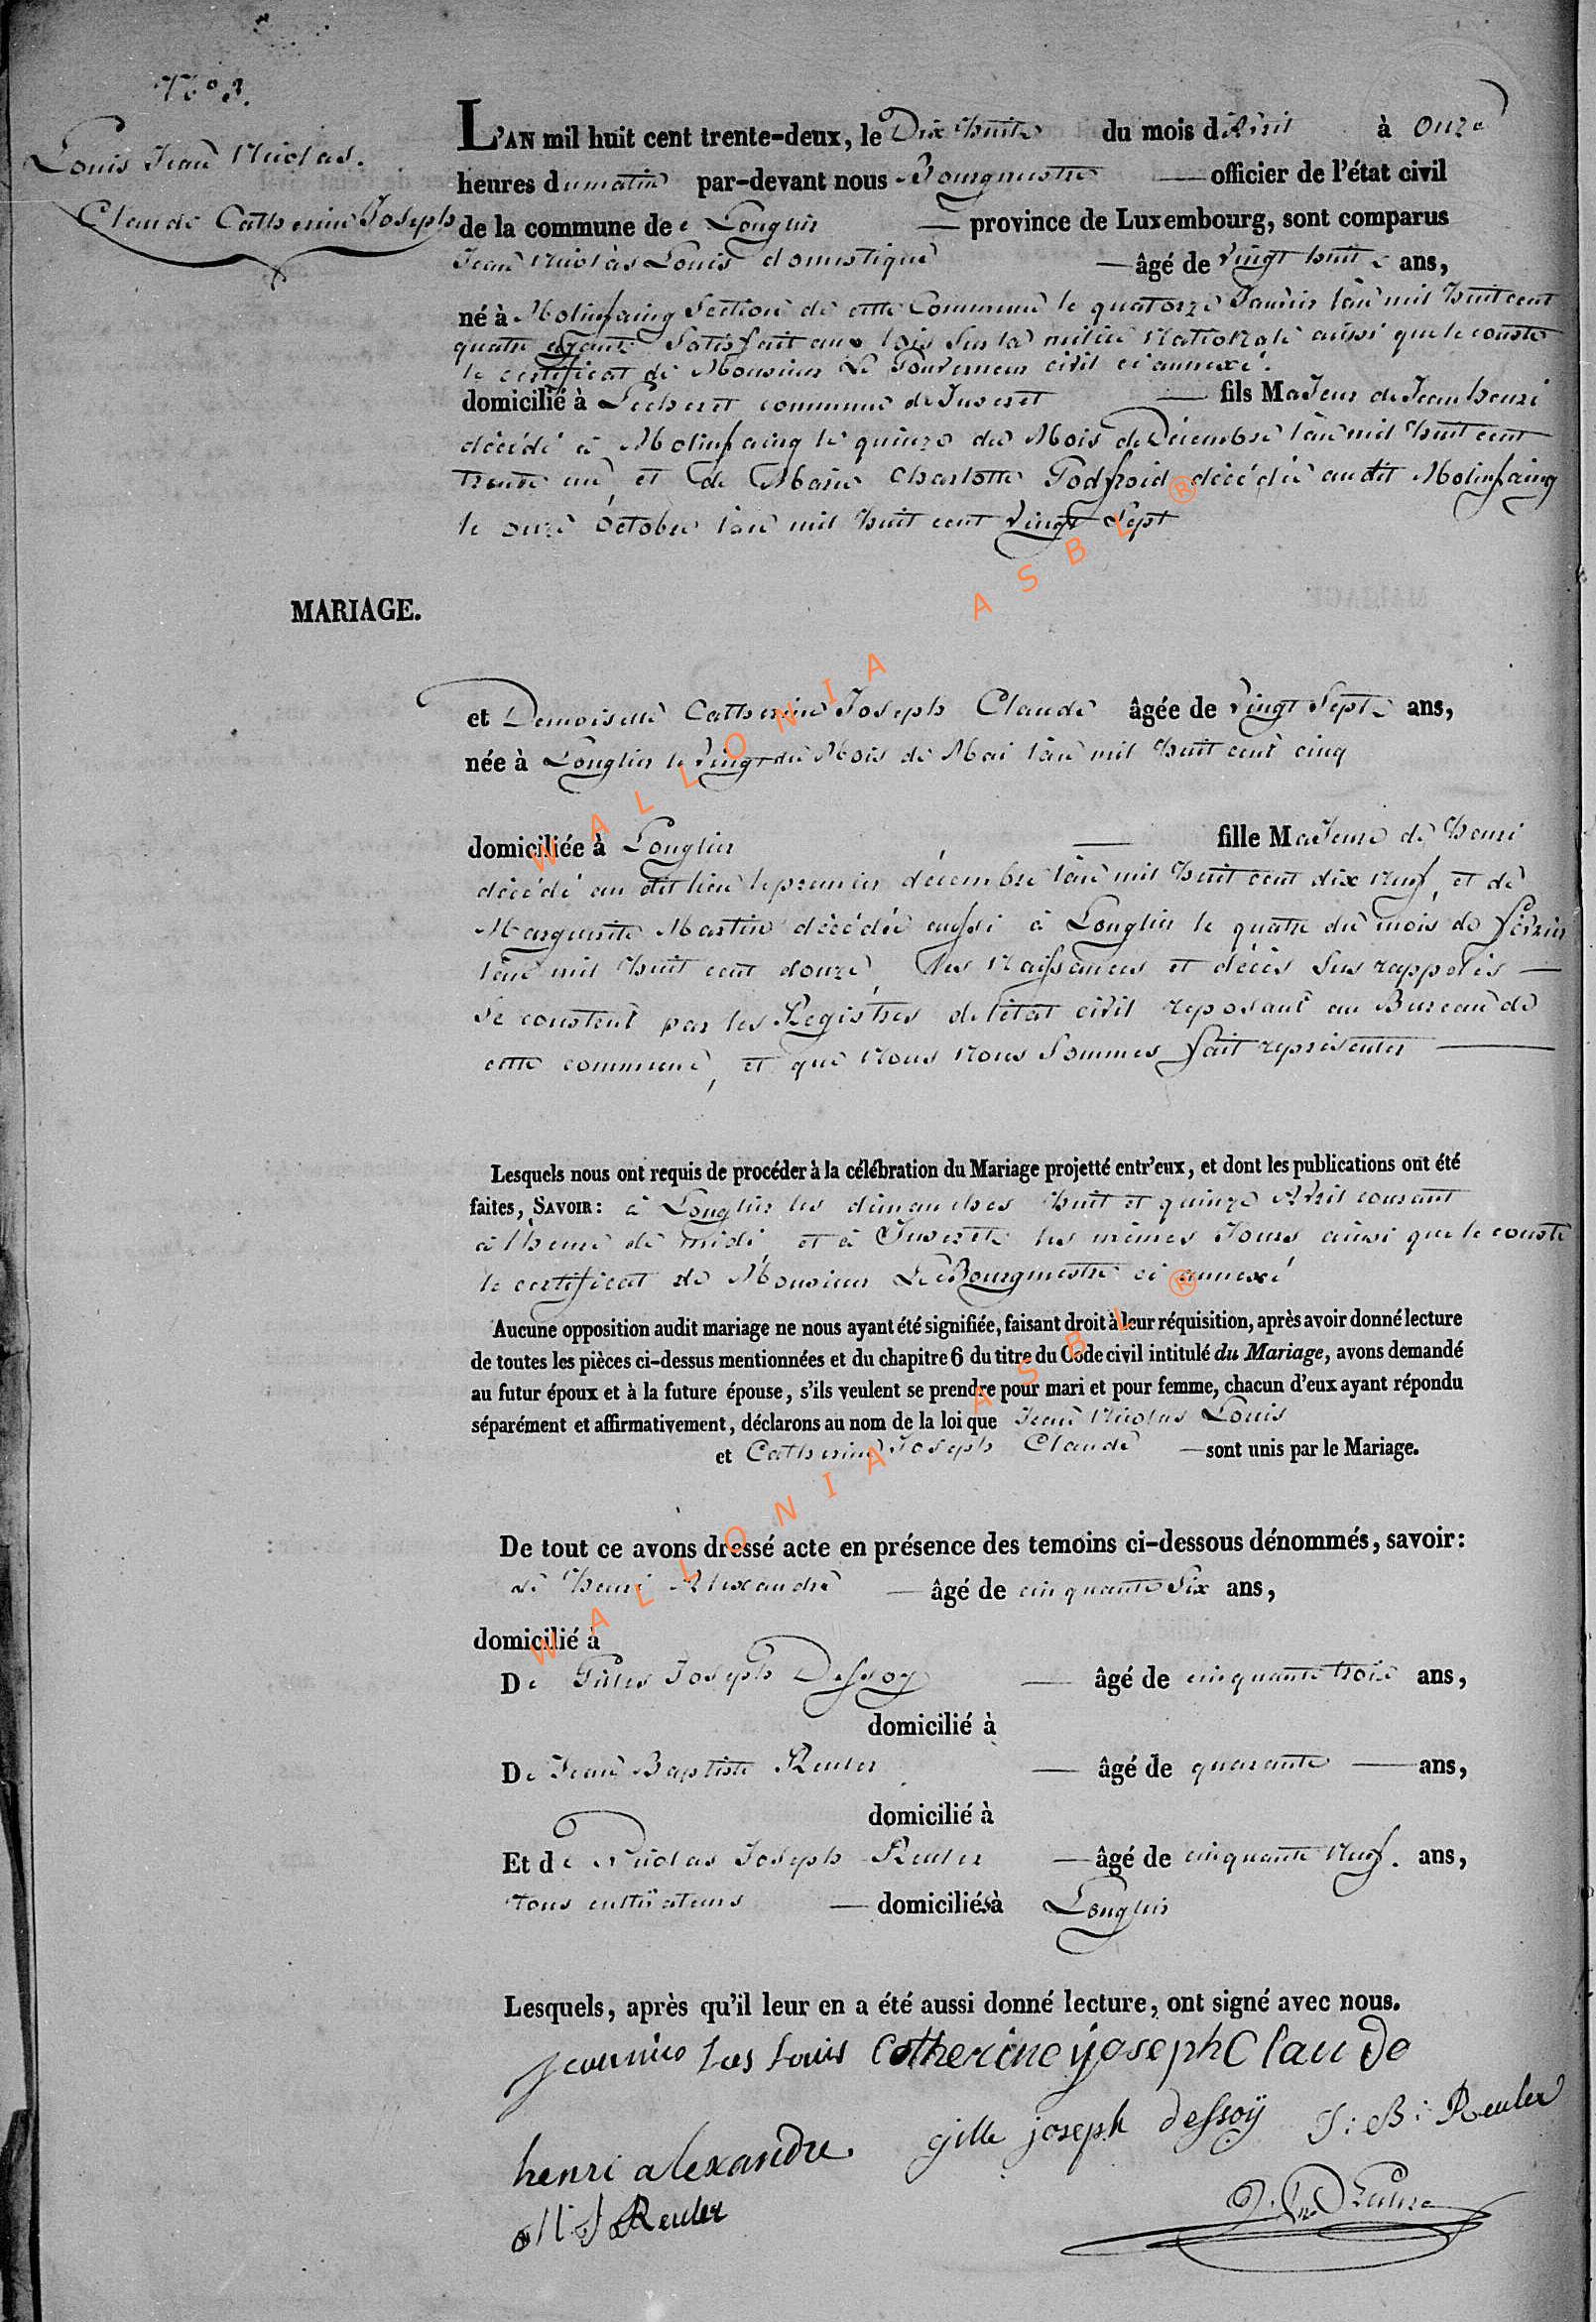 N° 3.
Louis Jean Nicolas.
Claude Catherine Joseph
L'AN mil huit cent trente-deux, le Dix huite du mois d'Avril à onze
heures du matin par-devant nous Bourgmestre officier de l'état civil
de la commune de Longlier province de Luxembourg, sont comparus
Jean Nicolas Louis domestique âgé de vingt huit ans,
né à Molinfaing Section de cette Commune le quatorze Janvier l'an mil huit cent
quatre ayant Satisfait aux lois sur la milice Nationale ainsi que le conste
le certificat de Monsieur Le Gouverneur civil ci annexé.
domicilié à Lecheret commune de Juseret fils Majeur de Jean henri
décédé à Molinfaing le quinze du Mois de Décembre l'an mil huit cent
trente un, et de Marie Charlotte Godfroid décédée audit Molinfaing
le onze Octobre l'an mil huit cent vingt Sept
MARIAGE.
et Demoiselle Catherine Joseph Claude âgée de vingt Sept ans,
née à Longlier le vingt du Mois de Mai l'an mil huit cent cinq
domiciliée à Longlier fille Majeure de henri
décédé au dit lieu le premier décembre l'an mil huit cent dix neuf, et de
Marguerite Martin décédée aussi à Longlier le quatre du mois de février
l'an mil huit cent douze, les Naissances et décès sus rappelés
se constent par les Registres de l'état civil reposant au Bureau de
cette commune, et que Nous Nous Sommes fait représenter
Lesquels nous ont requis de procéder à la célébration du Mariage projetté entr'eux, et dont les publications ont été
faites, SAVOIR: à Longlier les dimanches huit et quinze Avril courant
à l'heure de midi, et à Juseret les mêmes Jours ainsi que le conste
le certificat de Monsieur Le Bourgmestre ci annexé
Aucune opposition audit mariage ne nous ayant été signifiée, faisant droit à leur réquisition, après avoir donné lecture
de toutes les pièces ci-dessus mentionnées et du chapitre 6 du titre du Code civil intitulé du Mariage, avons demandé
au futur époux et à la future épouse, s'ils veulent se prendre pour mari et pour femme, chacun d'eux ayant répondu
séparément et affirmativement, déclarons au nom de la loi que Jean Nicolas Louis
et Catherine Joseph Claude sont unis par le Mariage.
De tout ce avons dressé acte en présence des temoins ci-dessous dénommés, savoir:
de henri Alexandre âgé de cinquante Six ans,
domicilié à
De Gilles Joseph Dessoy âgé de cinquante trois ans,
domicilié à
De Jean Baptiste Reuler âgé de quarante ans,
domicilié à
Et de Nicolas Joseph Reuler âgé de cinquante Neuf. ans,
tous cultivateurs domiciliés à Longlier
Lesquels, après qu'il leur en a été aussi donné lecture, ont signé avec nous.
jean nico las Louis Catherine yoseph Claude
henri alexandre. gille joseph dessoÿ J: B: Reuler
N J Reuler
WALLONIA ASBL ®
WALLONIA ASBL ®